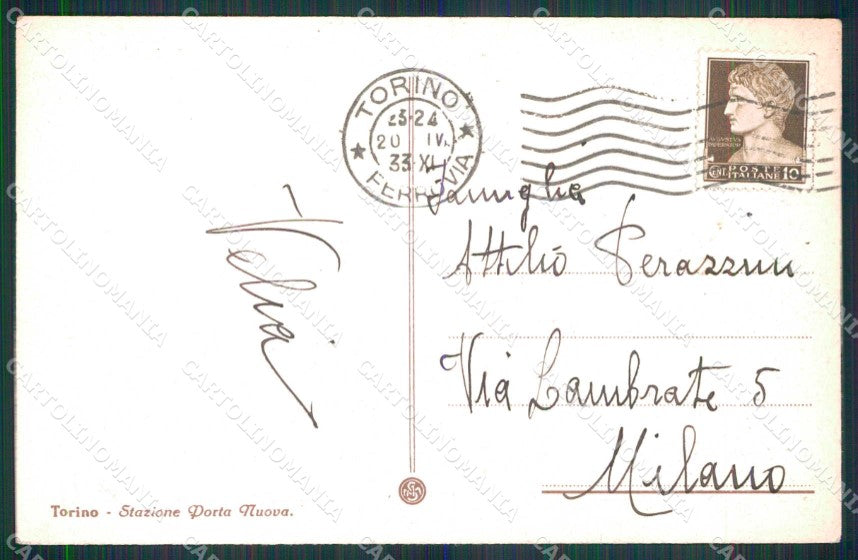 TORINO
23-24
20 IV
33·XI
FERROVIA
POSTE
ITALIANE
CENT. 10
Famiglia
Attilio Perazzini
Via Lambrate 5
Milano
Velia
Torino - Stazione Porta Nuova.
CARTOLINOMANIA